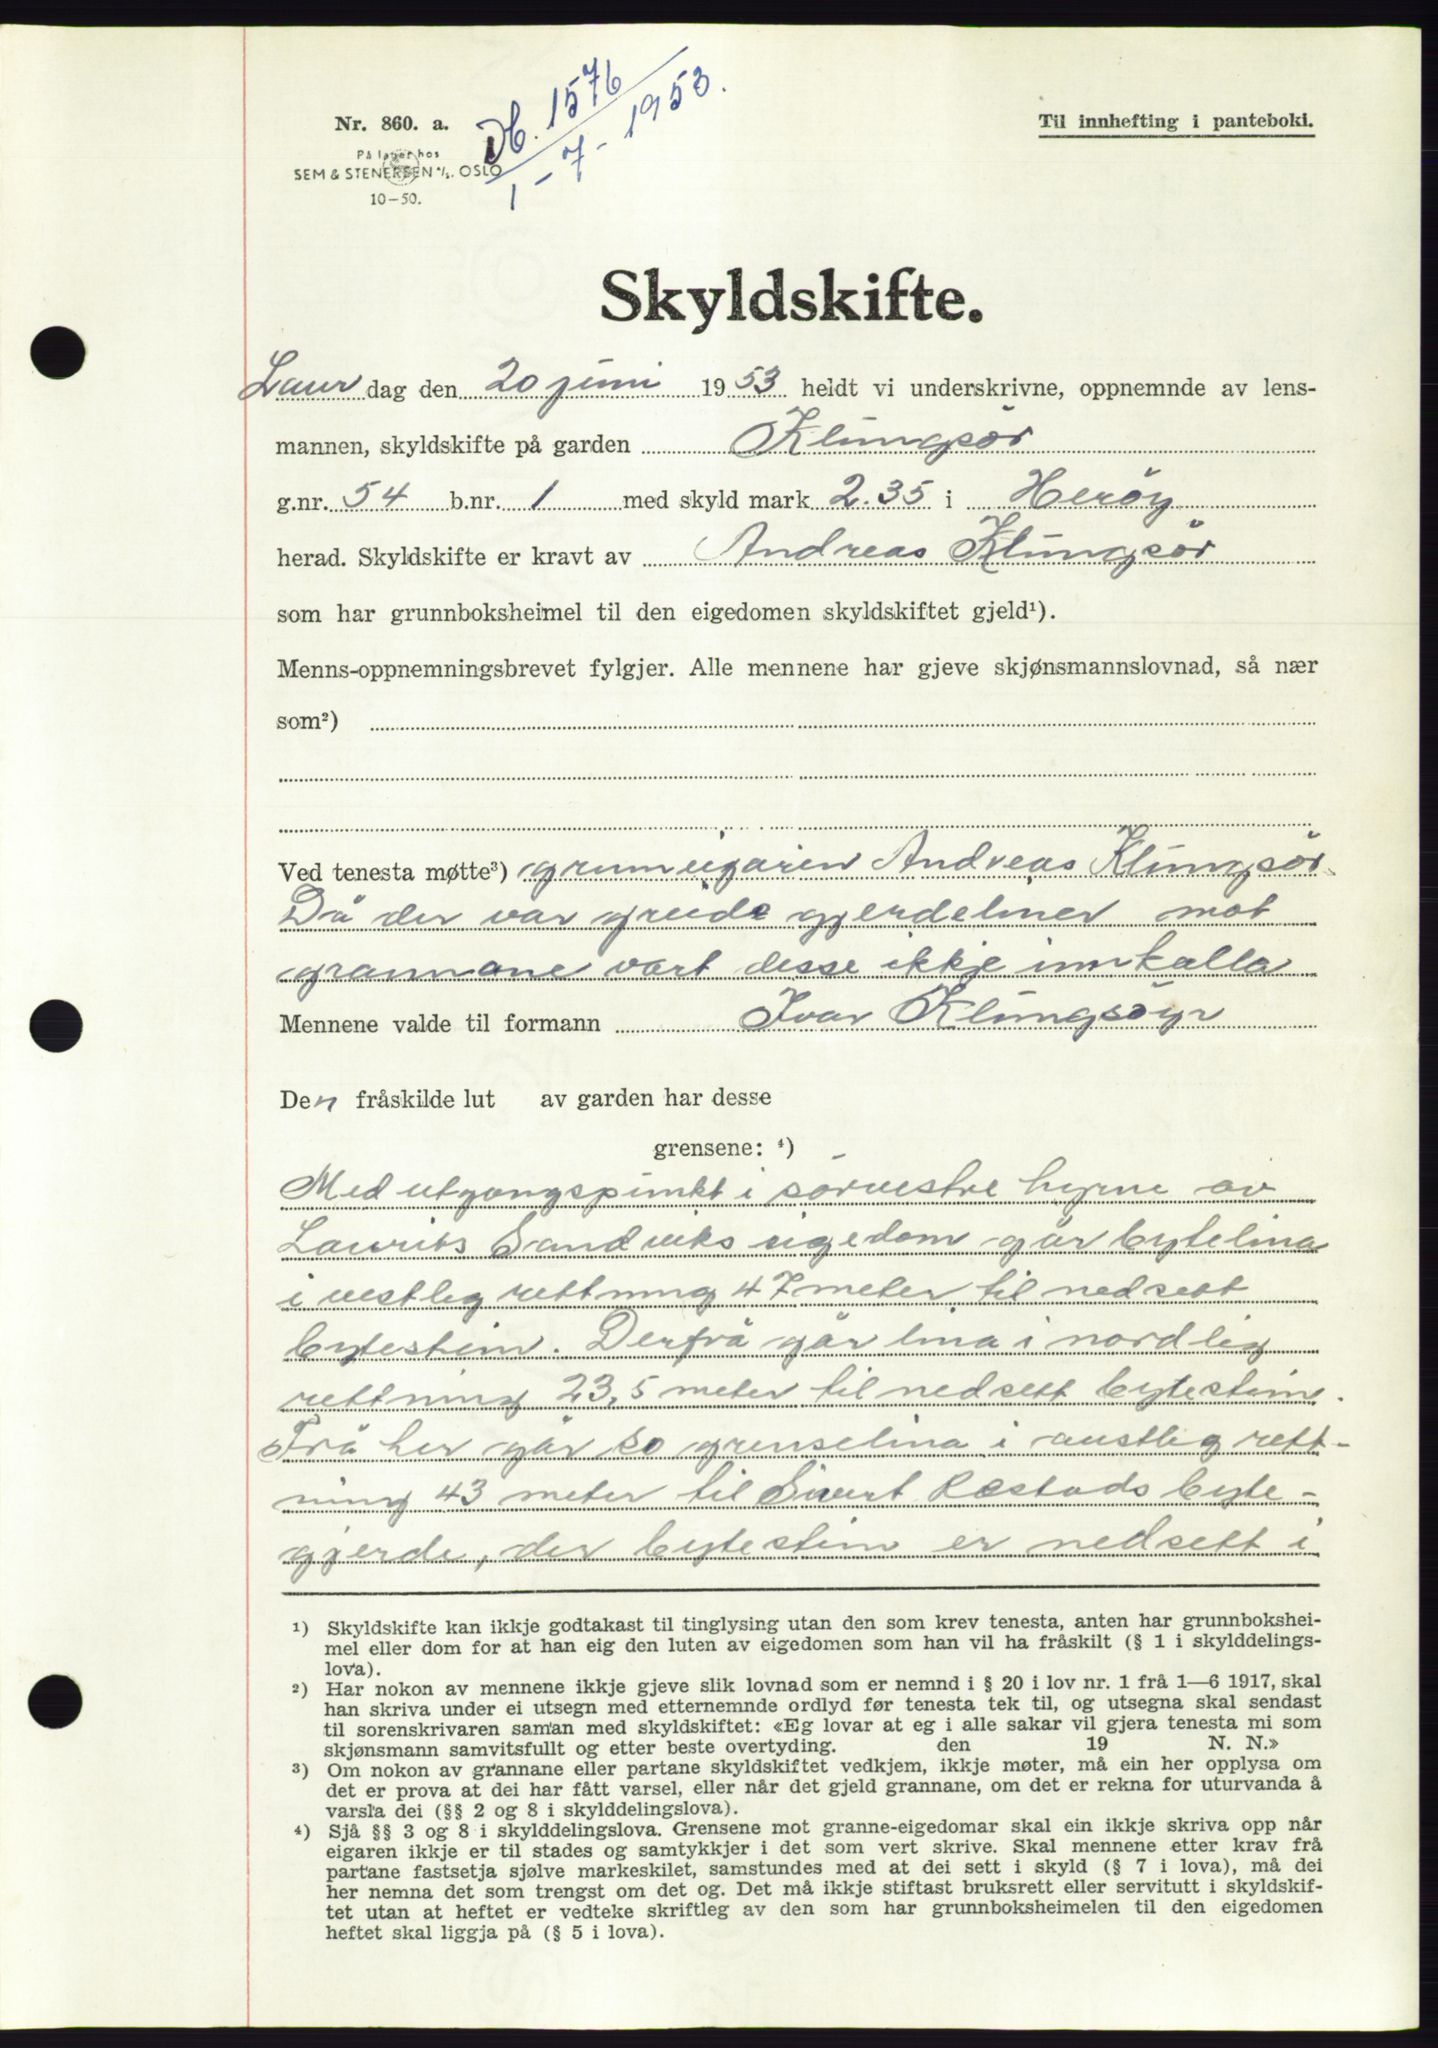 Nr. 860. a.
På lager hos
SEM & STENERSEN A/S. OSLO
10-50.
Db. 1576
1-7-1953.
Til innhefting i panteboki.
Skyldskifte.
Laur dag den 20 juni 1953 heldt vi underskrivne, oppnemnde av lens-
mannen, skyldskifte på garden Klungsör
g.nr. 54 b.nr. 1 med skyld mark 2.35 i Heröy
herad. Skyldskifte er kravt av Andreas Klungsör
som har grunnboksheimel til den eigedomen skyldskiftet gjeld¹).
Menns-oppnemningsbrevet fylgjer. Alle mennene har gjeve skjønsmannslovnad, så nær
som²)
Ved tenesta møtte³) grunneigaren Andreas Klungsör.
Då der var greide gjerdeliner mot
grannane vart desse ikkje innkalla
Mennene valde til formann Ivar Klungsöyr
Den fråskilde lut av garden har desse
grensene: ⁴)
Med utgangspunkt i sörvestre hyrne av
Laurits Sandviks eigedom går bytelina
i vestleg rettning 47 meter til nedsett
bytestein. Derfrå går lina i nordleg
rettning 23,5 meter til nedsett bytestein.
Frå her går so grenselina i austleg rett-
ning 43 meter til Sivert Røstads byte-
gjerde, der bytestein er nedsett i
¹) Skyldskifte kan ikkje godtakast til tinglysing utan den som krev tenesta, anten har grunnbokshei-
mel eller dom for at han eig den luten av eigedomen som han vil ha fråskilt (§ 1 i skylddelings-
lova).
²) Har nokon av mennene ikkje gjeve slik lovnad som er nemnd i § 20 i lov nr. 1 frå 1—6 1917, skal
han skriva under ei utsegn med etternemnde ordlyd før tenesta tek til, og utsegna skal sendast
til sorenskrivaren saman med skyldskiftet: «Eg lovar at eg i alle sakar vil gjera tenesta mi som
skjønsmann samvitsfullt og etter beste overtyding. den 19 N. N.»
³) Om nokon av grannane eller partane skyldskiftet vedkjem, ikkje møter, må ein her opplysa om
det er prova at dei har fått varsel, eller når det gjeld grannane, om det er rekna for uturvanda å
varsla dei (§§ 2 og 8 i skylddelingslova).
⁴) Sjå §§ 3 og 8 i skylddelingslova. Grensene mot granne-eigedomar skal ein ikkje skriva opp når
eigaren ikkje er til stades og samtykkjer i det som vert skrive. Skal mennene etter krav frå
partane fastsetja sjølve markeskilet, samstundes med at dei sett i skyld (§ 7 i lova), må dei
her nemna det som trengst om det og. Det må ikkje stiftast bruksrett eller servitutt i skyldskif-
tet utan at heftet er vedteke skriftleg av den som har grunnboksheimelen til den eigedomen
heftet skal liggja på (§ 5 i lova).